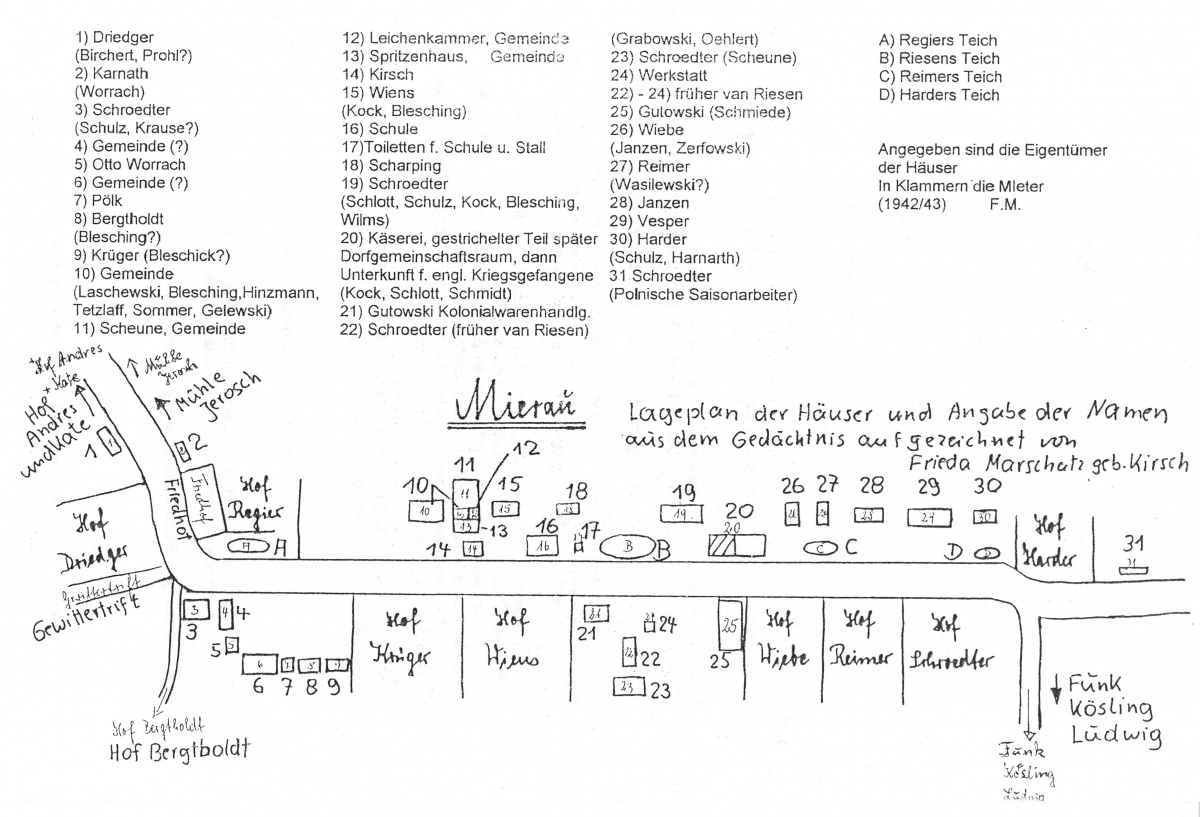 1) Driedger
(Birchert, Prohl?)
2) Karnath
(Worrach)
3) Schroedter
(Schulz, Krause?)
4) Gemeinde (?)
5) Otto Worrach
6) Gemeinde (?)
7) Pölk
8) Bergtholdt
(Blesching?)
9) Krüger (Bleschick?)
10) Gemeinde
(Laschewski, Blesching,Hinzmann,
Tetzlaff, Sommer, Gelewski)
11) Scheune, Gemeinde
12) Leichenkammer, Gemeinde
13) Spritzenhaus, Gemeinde
14) Kirsch
15) Wiens
(Kock, Blesching)
16) Schule
17)Toiletten f. Schule u. Stall
18) Scharping
19) Schroedter
(Schlott, Schulz, Kock, Blesching,
Wilms)
20) Käserei, gestrichelter Teil später
Dorfgemeinschaftsraum, dann
Unterkunft f. engl. Kriegsgefangene
(Kock, Schlott, Schmidt)
21) Gutowski Kolonialwarenhandlg.
22) Schroedter (früher van Riesen)
(Grabowski, Oehlert)
23) Schroedter (Scheune)
24) Werkstatt
22) - 24) früher van Riesen
25) Gutowski (Schmiede)
26) Wiebe
(Janzen, Zerfowski)
27) Reimer
(Wasilewski?)
28) Janzen
29) Vesper
30) Harder
(Schulz, Harnarth)
31 Schroedter
(Polnische Saisonarbeiter)
A) Regiers Teich
B) Riesens Teich
C) Reimers Teich
D) Harders Teich
Angegeben sind die Eigentümer
der Häuser
In Klammern die MIeter
(1942/43) F.M.
Mieraŭ
Lageplan der Häuser und Angabe der Namen
aus dem Gedächtnis aufgezeichnet von
Frieda Marschatz geb. Kirsch
Hof Andres
+ Kate
Mühle
Jerosch
Hof
Andres
und Kate
Mühle
Jerosch
1
2
Friedhof
Friedhof
Hof
Regier
A A
Hof
Driedger
Gewittertrift
Gewittertrift
10 10
11 11
12
13 13
14 14
15 15
16 16
17
18 18
19 19
20 20
B B
26 26
27 27
28 28
29 29
30 30
C C
D D
Hof
Harder
31 31
3 3
4 4
5 5
6 6
7 7
8 8
9 9
Hof
Krüger
Hof
Wiens
21 21
22 22
23 23
24
25 25
Hof
Wiebe
Hof
Reimer
Hof
Schroedter
Hof Bergtholdt
Hof Bergtboldt
Fŭnk
Kösling
Lŭdwig
Fŭnk
Kösling
Lŭdwig